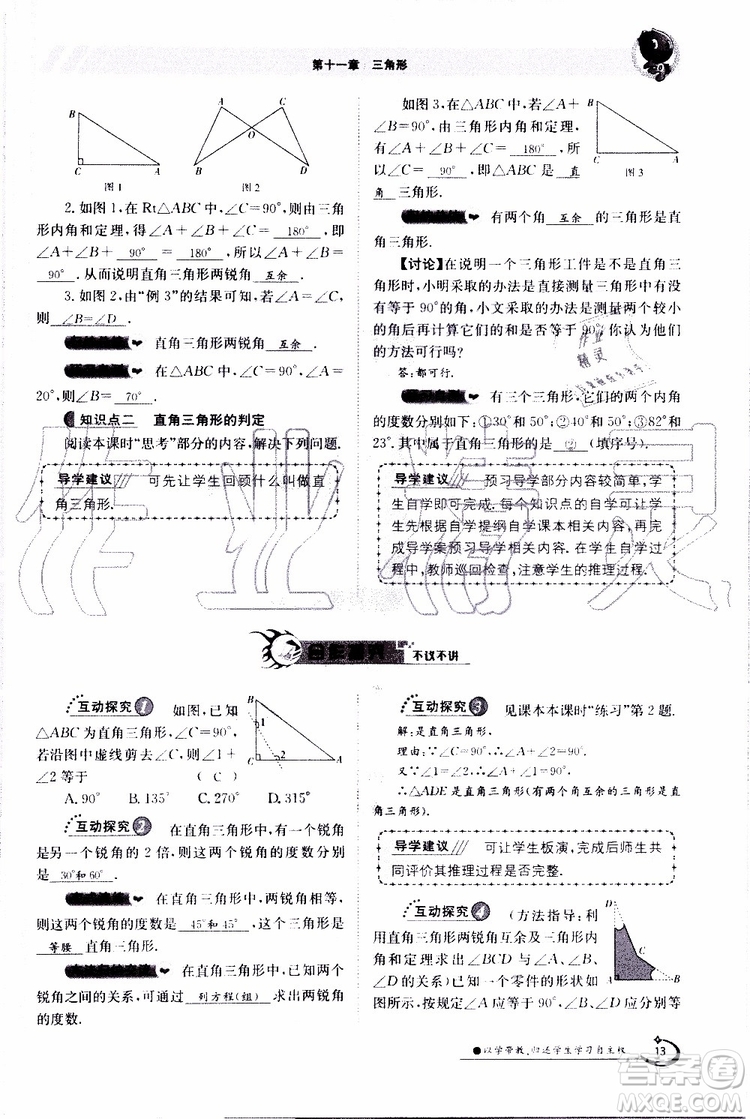 第十一章 三角形
B
C
A
图1
A
C
O
B
D
图2
2. 如图1,在Rt△ABC中,∠C=90°,由三角
形内角和定理,得∠A+∠B+∠C= 180° ,即
∠A+∠B+ 90° = 180° ,所以∠A+∠B=
90° .从而说明直角三角形两锐角 互余 .
3. 如图2,由“例3”的结果可知,若∠A=∠C,
则 ∠B=∠D .
直角三角形两锐角 互余 .
在△ABC中,∠C=90°,∠A=
20°,则∠B= 70° .
知识点二 直角三角形的判定
阅读本课时“思考”部分的内容,解决下列问题.
导学建议 可先让学生回顾什么叫做直
角三角形.
如图3,在△ABC中,若∠A+
∠B=90°,由三角形内角和定理,
有∠A+∠B+∠C= 180° ,所以
∠C= 90° ,即△ABC是 直
角 三角形.
B
C
A
图3
有两个角 互余 的三角形是直
角三角形.
【讨论】在说明一个三角形工件是不是直角三
角形时,小明采取的办法是直接测量三角形中
有没有等于90°的角,小文采取的办法是测量两个较小
的角后再计算它们的和是否等于90°.你认为他们
的方法可行吗?
答:都可行.
有三个三角形,它们的两个内角
的度数分别如下:①30°和50°;②40°和50°;③82°和
23°.其中属于直角三角形的是 ② (填序号).
导学建议 预习导学部分内容较简单,学
生自学即可完成.每个知识点的自学可让学
生先根据自学提纲自学课本相关内容,再完
成导学案预习导学相关内容.在学生自学过
程中,教师巡回检查,注意学生的推理过程.
不议不讲
互动探究1 如图,已知
△ABC为直角三角形,∠C=90°,
若沿图中虚线剪去∠C,则∠1+
∠2等于 ( C )
A. 90° B. 135° C. 270° D. 315°
B
1
2
C
A
互动探究2 在直角三角形中,有一个锐角
是另一个锐角的2倍,则这两个锐角的度数分别
是 30°和60° .
在直角三角形中,若两个锐角相等,
则这两个锐角的度数是 45°和45° ,这个三角形是
等腰 直角三角形.
在直角三角形中,已知两个
锐角的关系,可通过 列方程(组) 求出两锐角
的度数.
互动探究3 见课本本课时“练习”第2题.
解:是直角三角形.
理由:∵∠C=90°,∴∠A+∠2=90°.
又∵∠1=∠2,∴∠A+∠1=90°.
∴△ADE是直角三角形(有两个角互余的三角形是直
角三角形).
导学建议 可让学生板演,完成后师生共
同评价其推理过程是否完整.
互动探究4 (方法指导:利
用直角三角形两锐角互余及三角形内
角和定理求出∠BCD与∠A、∠B、
∠D的关系)已知一个零件的形状如
图所示,按规定∠A应等于90°,∠B、∠D应分别是
D
C
A
B
以学带教,归还学生学习自主权
13